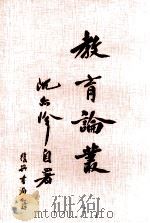 教育論叢
沈亦珍自署
復興書局